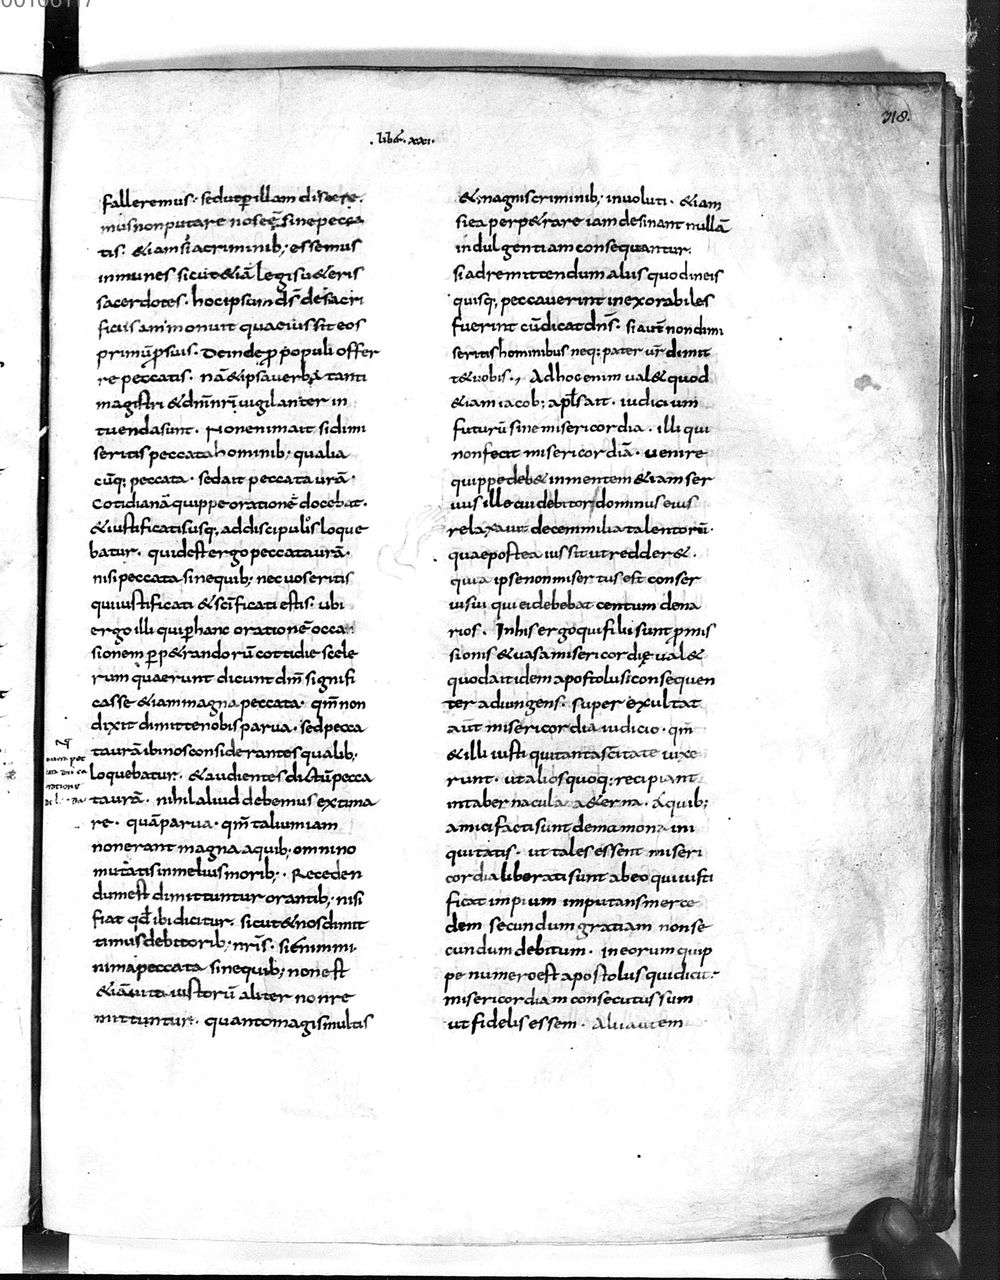 00106117
318.
. lib&. xxi.
falleremus· sed ut p̄ illam discere
mus non putare nos eę̄ sine pecca
tis· &iam si a criminib; essemus
inmunes sicut &iā legis u&eris
sacerdotes· hoc ipsum dš de sacri
ficiis ammonuit quae iussit eos
primū p suis· Deinde ꝓ populi offer
re peccatis. nā & ipsa verba tanti
magistri & dñi nr̄i vigilanter in
tuenda sunt. Non enim ait si dimi
seritis peccata hominib; qualia
cūq; peccata· sed ait peccata urā·
Cotidianā quippe orationē docebat·
& iustificatis usq; ad discipulis loque
batur. quid est ergo peccata urā·
nisi peccata sine quib; nec uos eritis
qui iustificati & sc̄ificati estis· ubi
ergo illi qui p hanc orationē occa
sionem ꝑp&randorū cottidie scele
rum quaerunt dicunt dn̄m signifi
casse &iam magna peccata· qm̄ non
dixit dimitte nobis parua· sed pecca
ta urā ibi nos considerantes qualib;
loquebatur· & audientes dictū pecca
ta urā· nihil aliud debemus extima
re· quā parua· qm̄ talium iam
non erant magna a quib; omnino
mutatis in melius morib;· Receden
dum est dimittuntur orantib; nisi
fiat qd̄ ibi dicitur· sicut & nos dimit
timus debitorib; nr̄is· Si enim mi
nima peccata sine quib; non est
&iā uita iustorū aliter non re
mittuntur· quanto magis multis
& magnis criminib; inuoluti· &iam
si ea perp&rare iam desinant nullā
indulgentiam consequantur·
si ad remittendum aliis quod in eis
quisq; peccauerint inexorabiles
fuerint cū dicat dn̄s· si aut̄ non dimi
seritis hominibus neq; pater ur̄ dimit
t& uobis·, Ad hoc enim ual& quod
&iam iacob; apl̄s ait· iudicium
futurū sine misericordia· illi qui
non fecit misericordiā· uenire
quippe deb& in mentem &iam ser
uus ille cui debitor dominus eius
relaxauit decem milia talentorū·
quae postea iussit ut redder&·
quia ipse non misertus est conser
ui sui qui ei debebat centum dena
rios. In his ergo qui filii sunt p̄mis
sionis & uasa misericordię ual&
quod ait idem apostolus consequen
ter adiungens· super exultat
aut misericordia iudicio· qm̄
& illi iusti qui tanta sc̄itate uixe
runt· ut alios quoq; recipiant
in tabernacula a&erna· A quib;
amici facti sunt de mamona ini
quitatis· ut tales essent miseri
cordia liberati sunt ab eo qui iusti
ficat impium imputans merce
dem secundum gratiam non se
cundum debitum· in eorum quip
pe numero est apostolus qui dicit·
misericordiam consecutus sum
ut fidelis essem· Alii autem